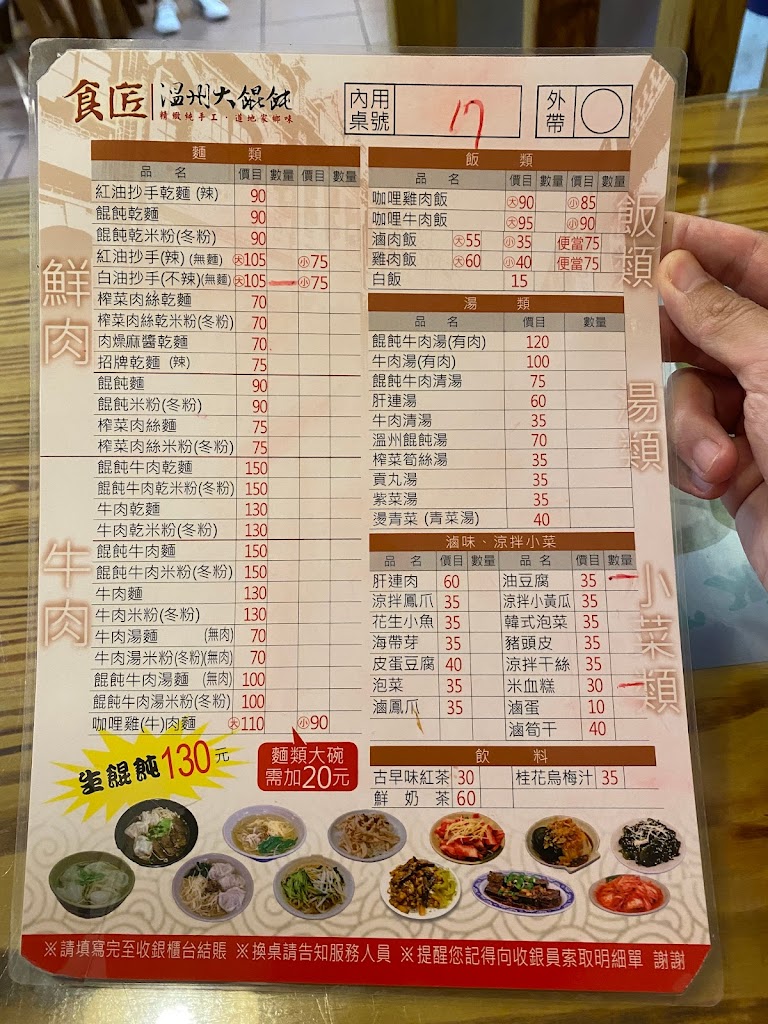 食匠 溫州大餛飩
精緻純手工．道地家鄉味
內用桌號 17 外帶
麵 類
品 名 價目 數量 價目 數量
紅油抄手乾麵 (辣) 90
餛飩乾麵 90
餛飩乾米粉(冬粉) 90
紅油抄手(辣) (無麵) 大105 小75
白油抄手(不辣)(無麵) 大105 小75
榨菜肉絲乾麵 70
榨菜肉絲乾米粉(冬粉) 70
肉燥麻醬乾麵 70
招牌乾麵 (辣) 75
餛飩麵 90
餛飩米粉(冬粉) 90
榨菜肉絲麵 75
榨菜肉絲米粉(冬粉) 75
餛飩牛肉乾麵 150
餛飩牛肉乾米粉(冬粉) 150
牛肉乾麵 130
牛肉乾米粉(冬粉) 130
餛飩牛肉麵 150
餛飩牛肉米粉(冬粉) 150
牛肉麵 130
牛肉米粉(冬粉) 130
牛肉湯麵 (無肉) 70
牛肉湯米粉(冬粉)(無肉) 70
餛飩牛肉湯麵 (無肉) 100
餛飩牛肉湯米粉(冬粉) 100
咖哩雞(牛)肉麵 大110 小90
鮮肉
牛肉
生餛飩130元
麵類大碗
需加20元
飯 類
品 名 價目 數量 價目 數量
咖哩雞肉飯 大90 小85
咖哩牛肉飯 大95 小90
滷肉飯 大55 小35 便當75
雞肉飯 大60 小40 便當75
白飯 15
飯類
湯 類
品 名 價目 數量
餛飩牛肉湯(有肉) 120
牛肉湯(有肉) 100
餛飩牛肉清湯 75
肝連湯 60
牛肉清湯 35
溫州餛飩湯 70
榨菜筍絲湯 35
貢丸湯 35
紫菜湯 35
燙青菜 (青菜湯) 40
湯類
滷味、涼拌小菜
品 名 價目 數量 品 名 價目 數量
肝連肉 60 油豆腐 35
涼拌鳳爪 35 涼拌小黃瓜 35
花生小魚 35 韓式泡菜 35
海帶芽 35 豬頭皮 35
皮蛋豆腐 40 涼拌干絲 35
泡菜 35 米血糕 30
滷鳳爪 35 滷蛋 10
滷筍干 40
小菜類
飲 料
古早味紅茶 30 桂花烏梅汁 35
鮮 奶 茶 60
※請填寫完至收銀櫃台結賬 ※換桌請告知服務人員 ※提醒您記得向收銀員索取明細單 謝謝